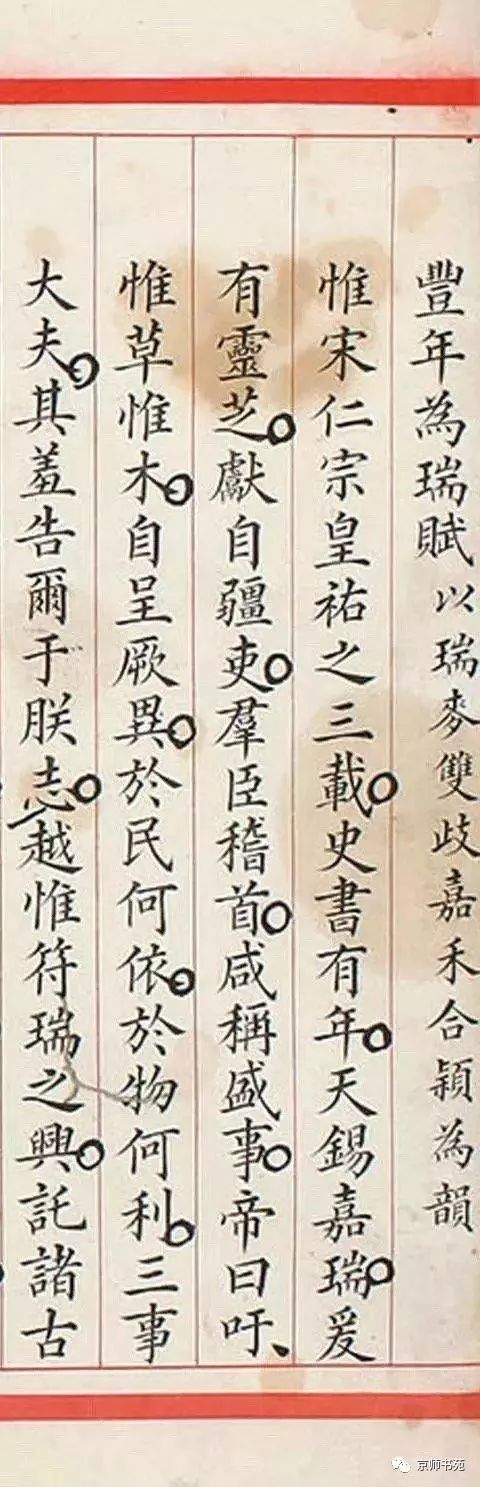 豐年為瑞賦以瑞麥雙歧嘉禾合穎為韻
惟宋仁宗皇祐之三載史書有年天錫嘉瑞爰
有靈芝獻自疆吏羣臣稽首咸稱盛事帝曰吁
惟草惟木自呈厥異於民何依於物何利三事
大夫其羞告爾于朕志越惟符瑞之興託諸古
京师书苑